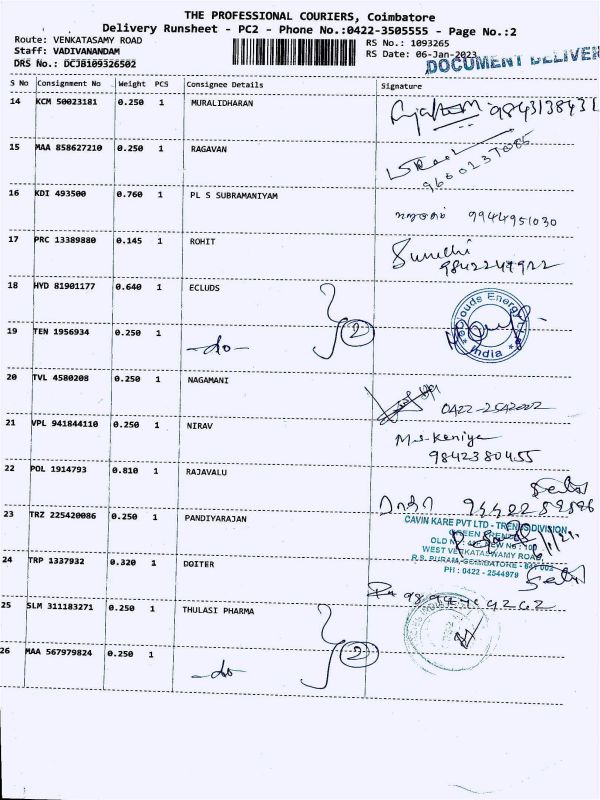 THE PROFESSIONAL COURIERS, Coimbatore
Delivery Runsheet - PC2 - Phone No.:0422-3505555 - Page No.:2
Route: VENKATASAMY ROAD
RS No.: 1093265
Staff: VADIVANANDAM
RS Date: 06-Jan-2023
DRS No.: DCJB109326502
DOCUMENT DELIVER
S No Consignment No Weight PCS Consignee Details Signature
14 KCM 50023181 0.250 1 MURALIDHARAN 9843138431
15 MAA 858627210 0.250 1 RAGAVAN
16 KDI 493500 0.760 1 PL S SUBRAMANIYAM 9944951030
17 PRC 13389880 0.145 1 ROHIT
9842249922
18 HYD 81901177 0.640 1 ECLUDS
2
India
19 TEN 1956934 0.250 1 -do-
20 TVL 4580208 0.250 1 NAGAMANI 0422-2542002
21 VPL 941844110 0.250 1 NIRAV M.S-Keniya
9842380455
22 POL 1914793 0.810 1 RAJAVALU
23 TRZ 225420086 0.250 1 PANDIYARAJAN
CAVIN KARE PVT LTD - TRENDS DIVISION
GREEN TRENDS
WEST VENKATASWAMY ROAD,
R.S. PURAM, COIMBATORE - 641 002
PH : 0422 - 2544979
24 TRP 1337932 0.320 1 DOITER
25 SLM 311183271 0.250 1 THULASI PHARMA
2
26 MAA 567979824 0.250 1 -do-